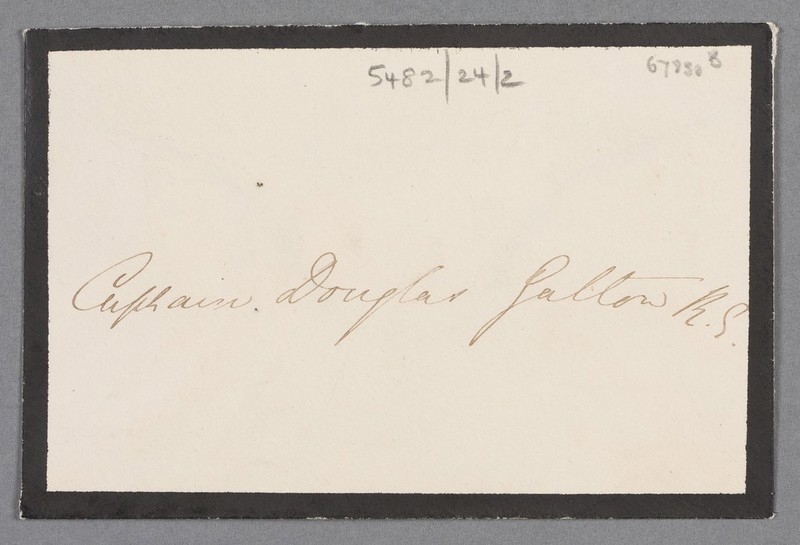 5482/24/2
Captain. Douglas Galton R.E.